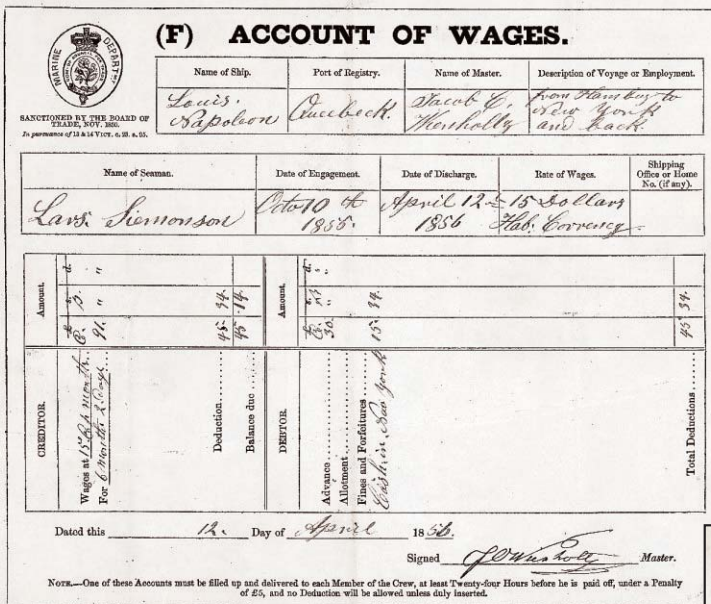 (F) ACCOUNT OF WAGES.
MARINE DEPARTMT
SANCTIONED BY THE BOARD OF
TRADE, NOV. 1850.
In pursuance of 13 & 14 VICT. c. 93. s. 95.
Name of Ship. Port of Registry. Name of Master. Description of Voyage or Employment.
Louis. Jacob C. from Hamburg to
Napoleon Quebeck. New York
and back
Name of Seaman. Date of Engagement. Date of Discharge. Rate of Wages. Shipping
Office or Home
No. (if any).
Lars. Siemonson Octo 10 th April 12 15 Dollars
1855. 1856 Hab. Corrency
CREDITOR. Amount.
Wages at 15 p month
For 6 Months 2 Days 91.
Deduction 45 34.
Balance due 45 14.
DEBTOR. Amount.
Advance 30.
Allotment
Fines and Forfeitures
Cash in New York 15 34.
Total Deductions 45 34.
Dated this 12. Day of April 1856.
Signed Master.
NOTE.—One of these Accounts must be filled up and delivered to each Member of the Crew, at least Twenty-four Hours before he is paid off, under a Penalty
of £5, and no Deduction will be allowed unless duly inserted.